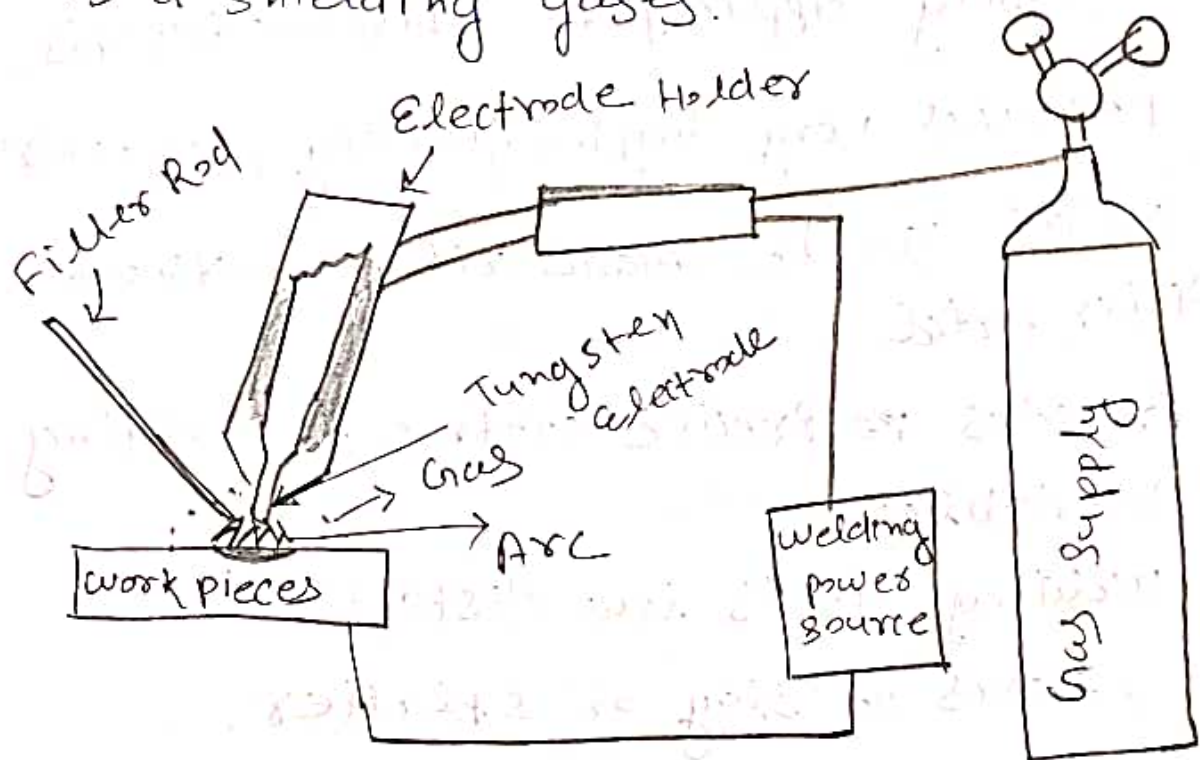 shielding gases.
Electrode Holder
Filler Rod
Tungsten
electrode
Gas
Arc
work pieces
welding
power
source
Gas Supply